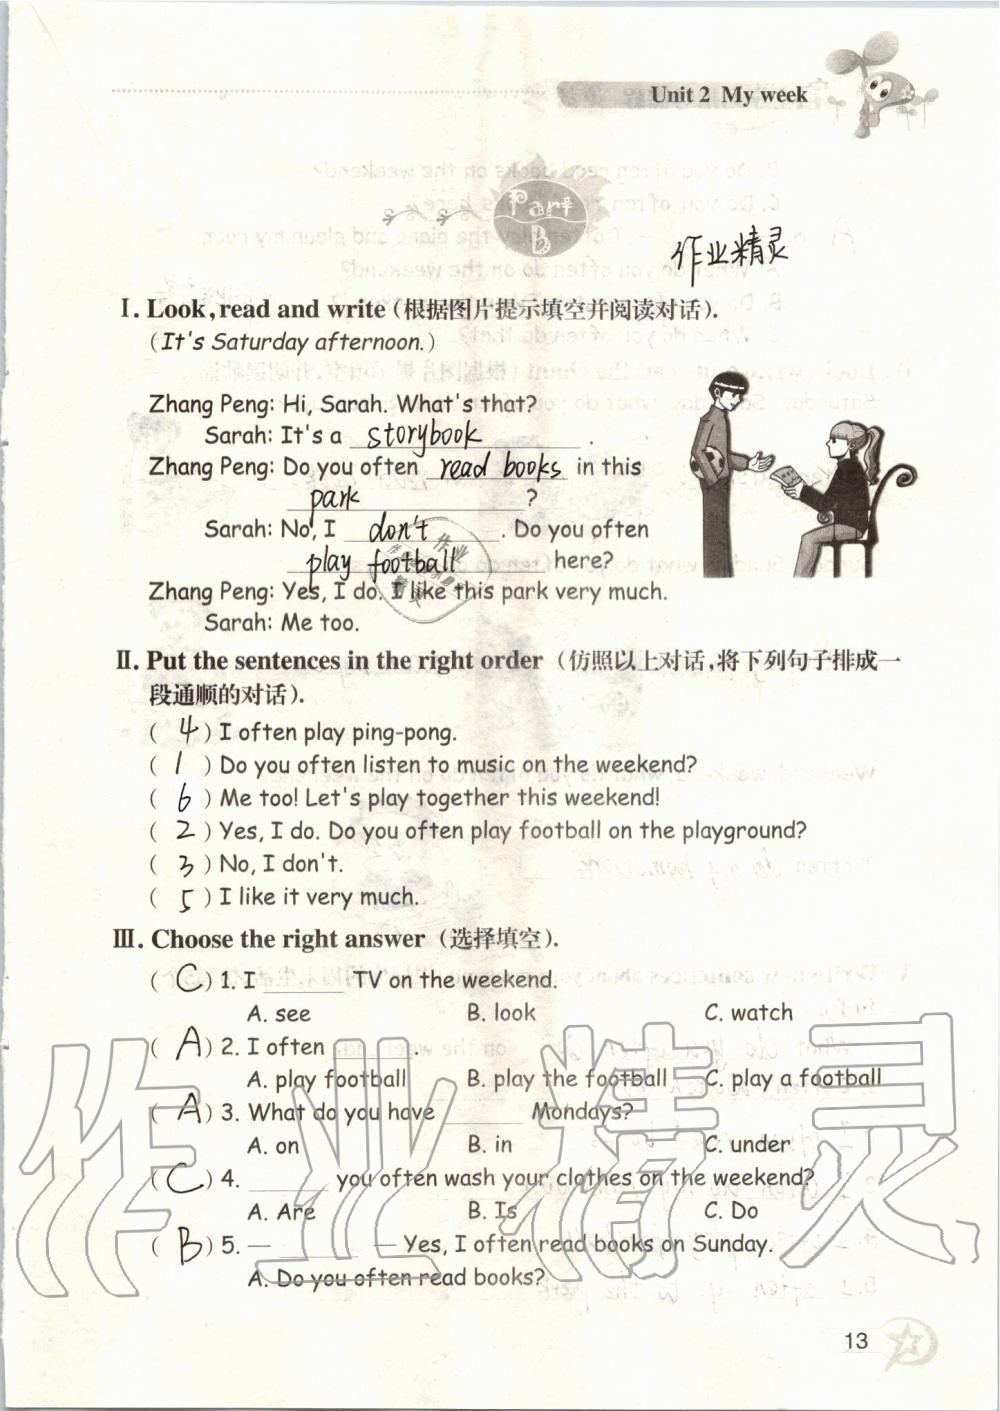 Unit 2 My week
Part B
作业精灵
Ⅰ. Look, read and write (根据图片提示填空并阅读对话).
(It's Saturday afternoon.)
Zhang Peng: Hi, Sarah. What's that?
Sarah: It's a storybook .
Zhang Peng: Do you often read books in this
park ?
Sarah: No, I don't . Do you often
play football here?
Zhang Peng: Yes, I do. I like this park very much.
Sarah: Me too.
Ⅱ. Put the sentences in the right order (仿照以上对话,将下列句子排成一
段通顺的对话).
( 4 ) I often play ping-pong.
( 1 ) Do you often listen to music on the weekend?
( 6 ) Me too! Let's play together this weekend!
( 2 ) Yes, I do. Do you often play football on the playground?
( 3 ) No, I don't.
( 5 ) I like it very much.
Ⅲ. Choose the right answer (选择填空).
( C ) 1. I ______ TV on the weekend.
A. see B. look C. watch
( A ) 2. I often ______ .
A. play football B. play the football C. play a football
( A ) 3. What do you have ______ Mondays?
A. on B. in C. under
( C ) 4. ______ you often wash your clothes on the weekend?
A. Are B. Is C. Do
( B ) 5. — ______ — Yes, I often read books on Sunday.
A. Do you often read books?
作业精灵
13